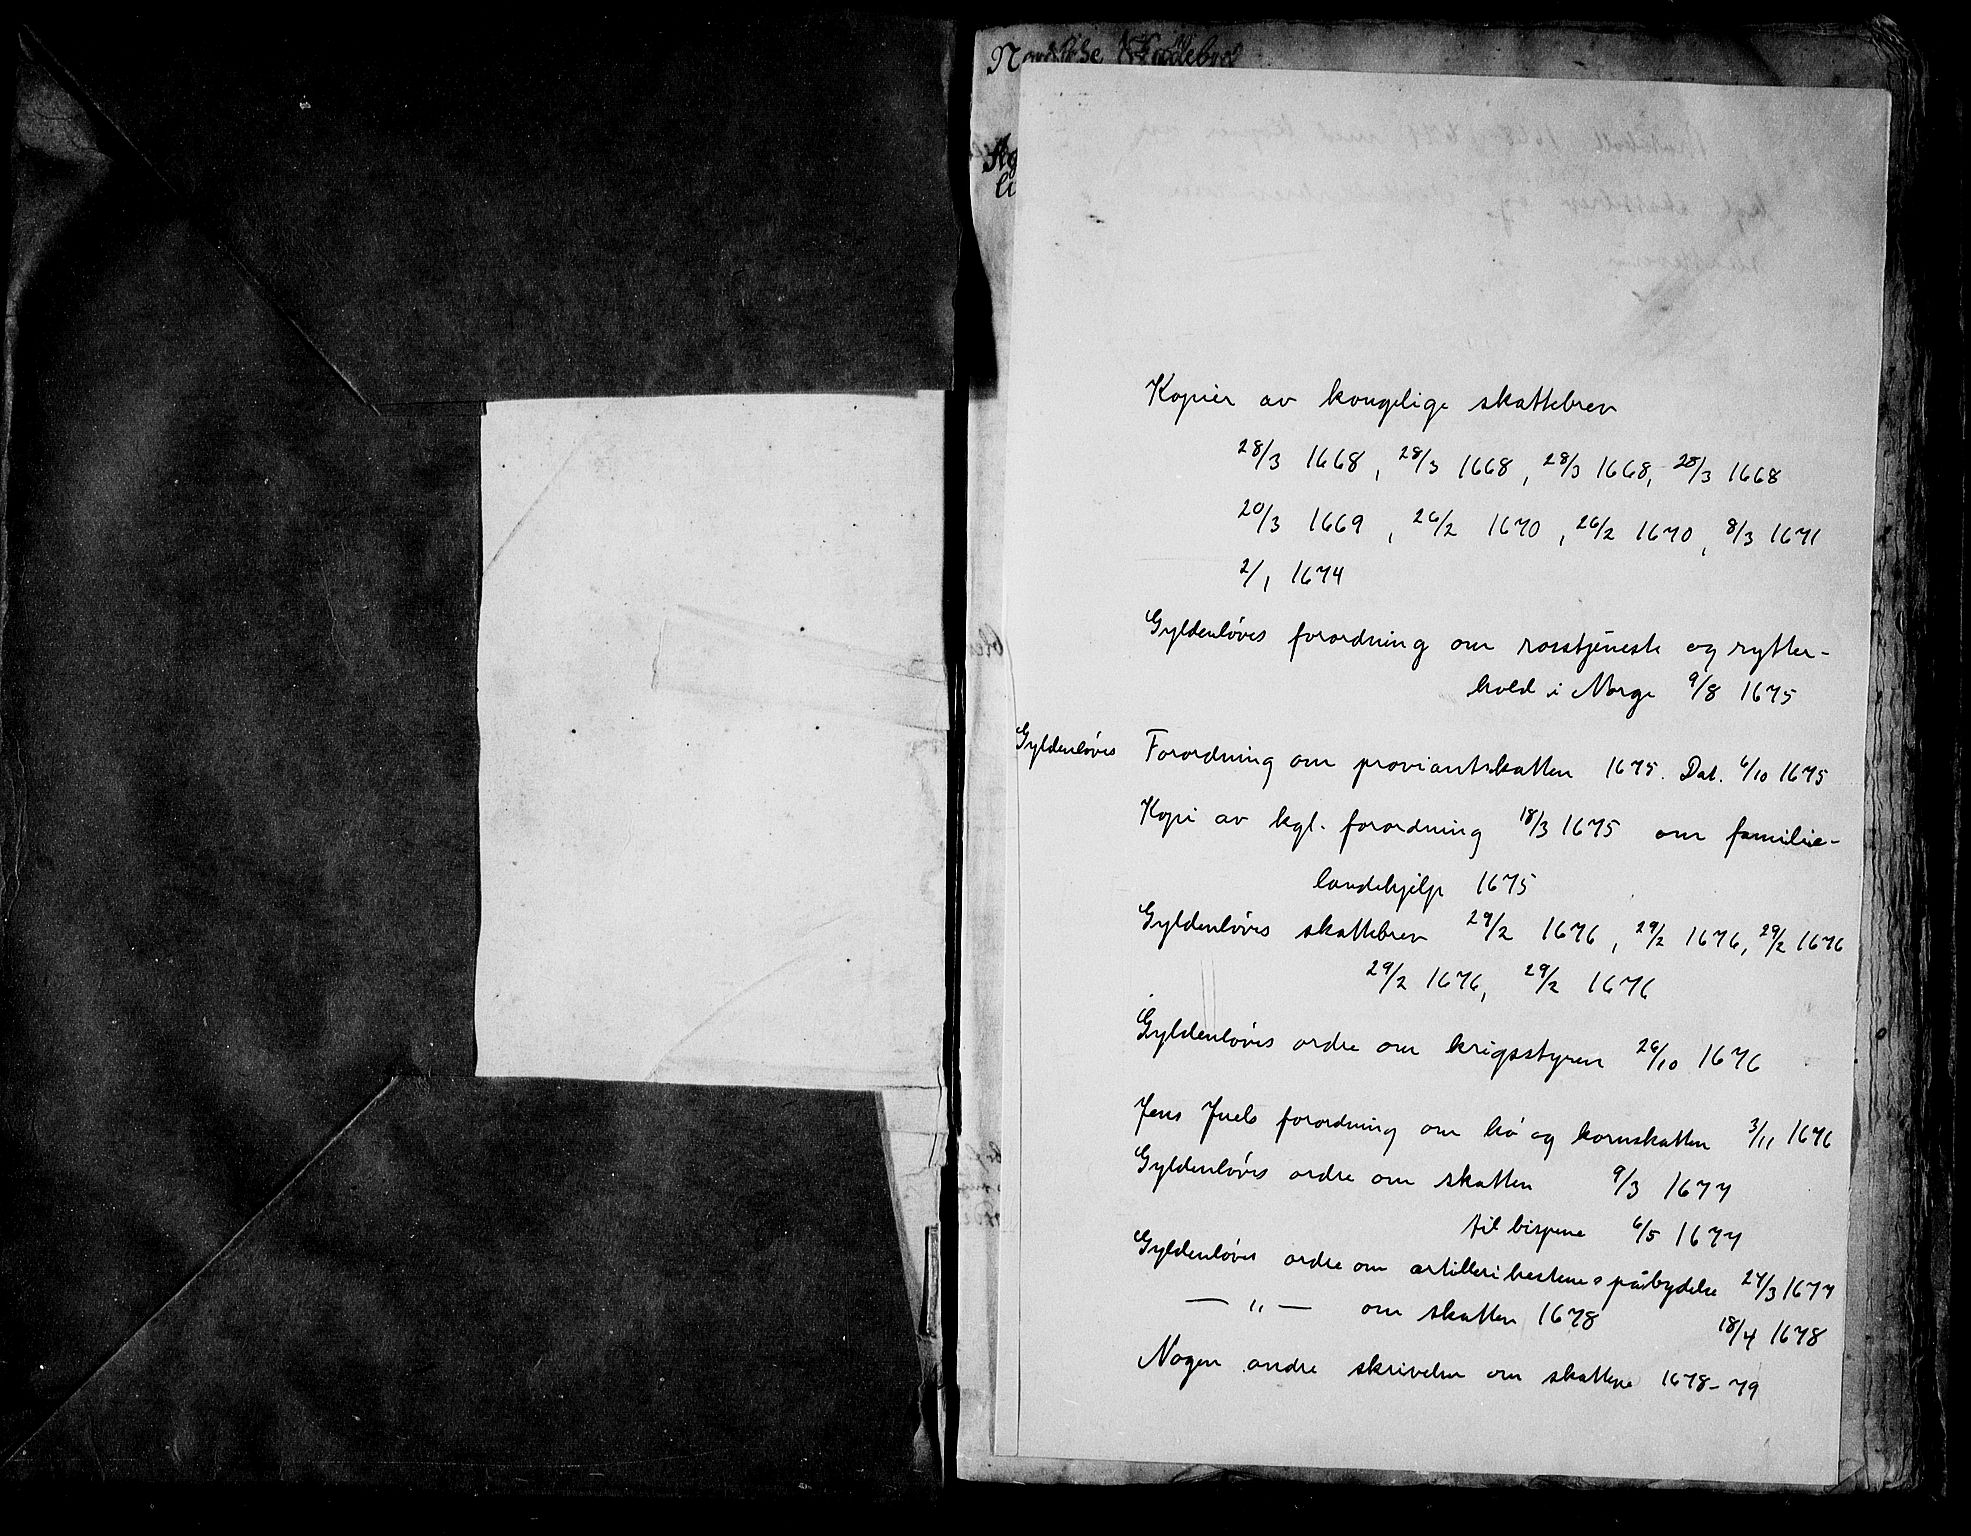 Kopier av kongelige skattebrev
28/3 1668, 28/3 1668, 28/3 1668, 28/3 1668
20/3 1669, 26/2 1670, 26/2 1670, 8/3 1671
2/1 1674
Gyldenløves forordning om rosstjeneste og rytter-
hold i Norge 9/8 1675
Gyldenløves Forordning om proviantskatten 1675. Dat. 6/10 1675
Kopi av kgl. forordning 18/3 1675 om familie-
landehjelp 1675
Gyldenløves skattebrev 29/2 1676, 29/2 1676, 29/2 1676
29/2 1676, 29/2 1676
Gyldenløves ordre om krigsstyren 26/10 1676
Jens Juels forordning om hö og kornskatten 3/11 1676
Gyldenløves ordre om skatten 9/3 1677
til bispene 6/5 1677
Gyldenløves ordre om artillerihestenes påbydelse 27/3 1677
— " — om skatten 1678 18/4 1678
Nogen andre skrivelser om skattene 1678-79